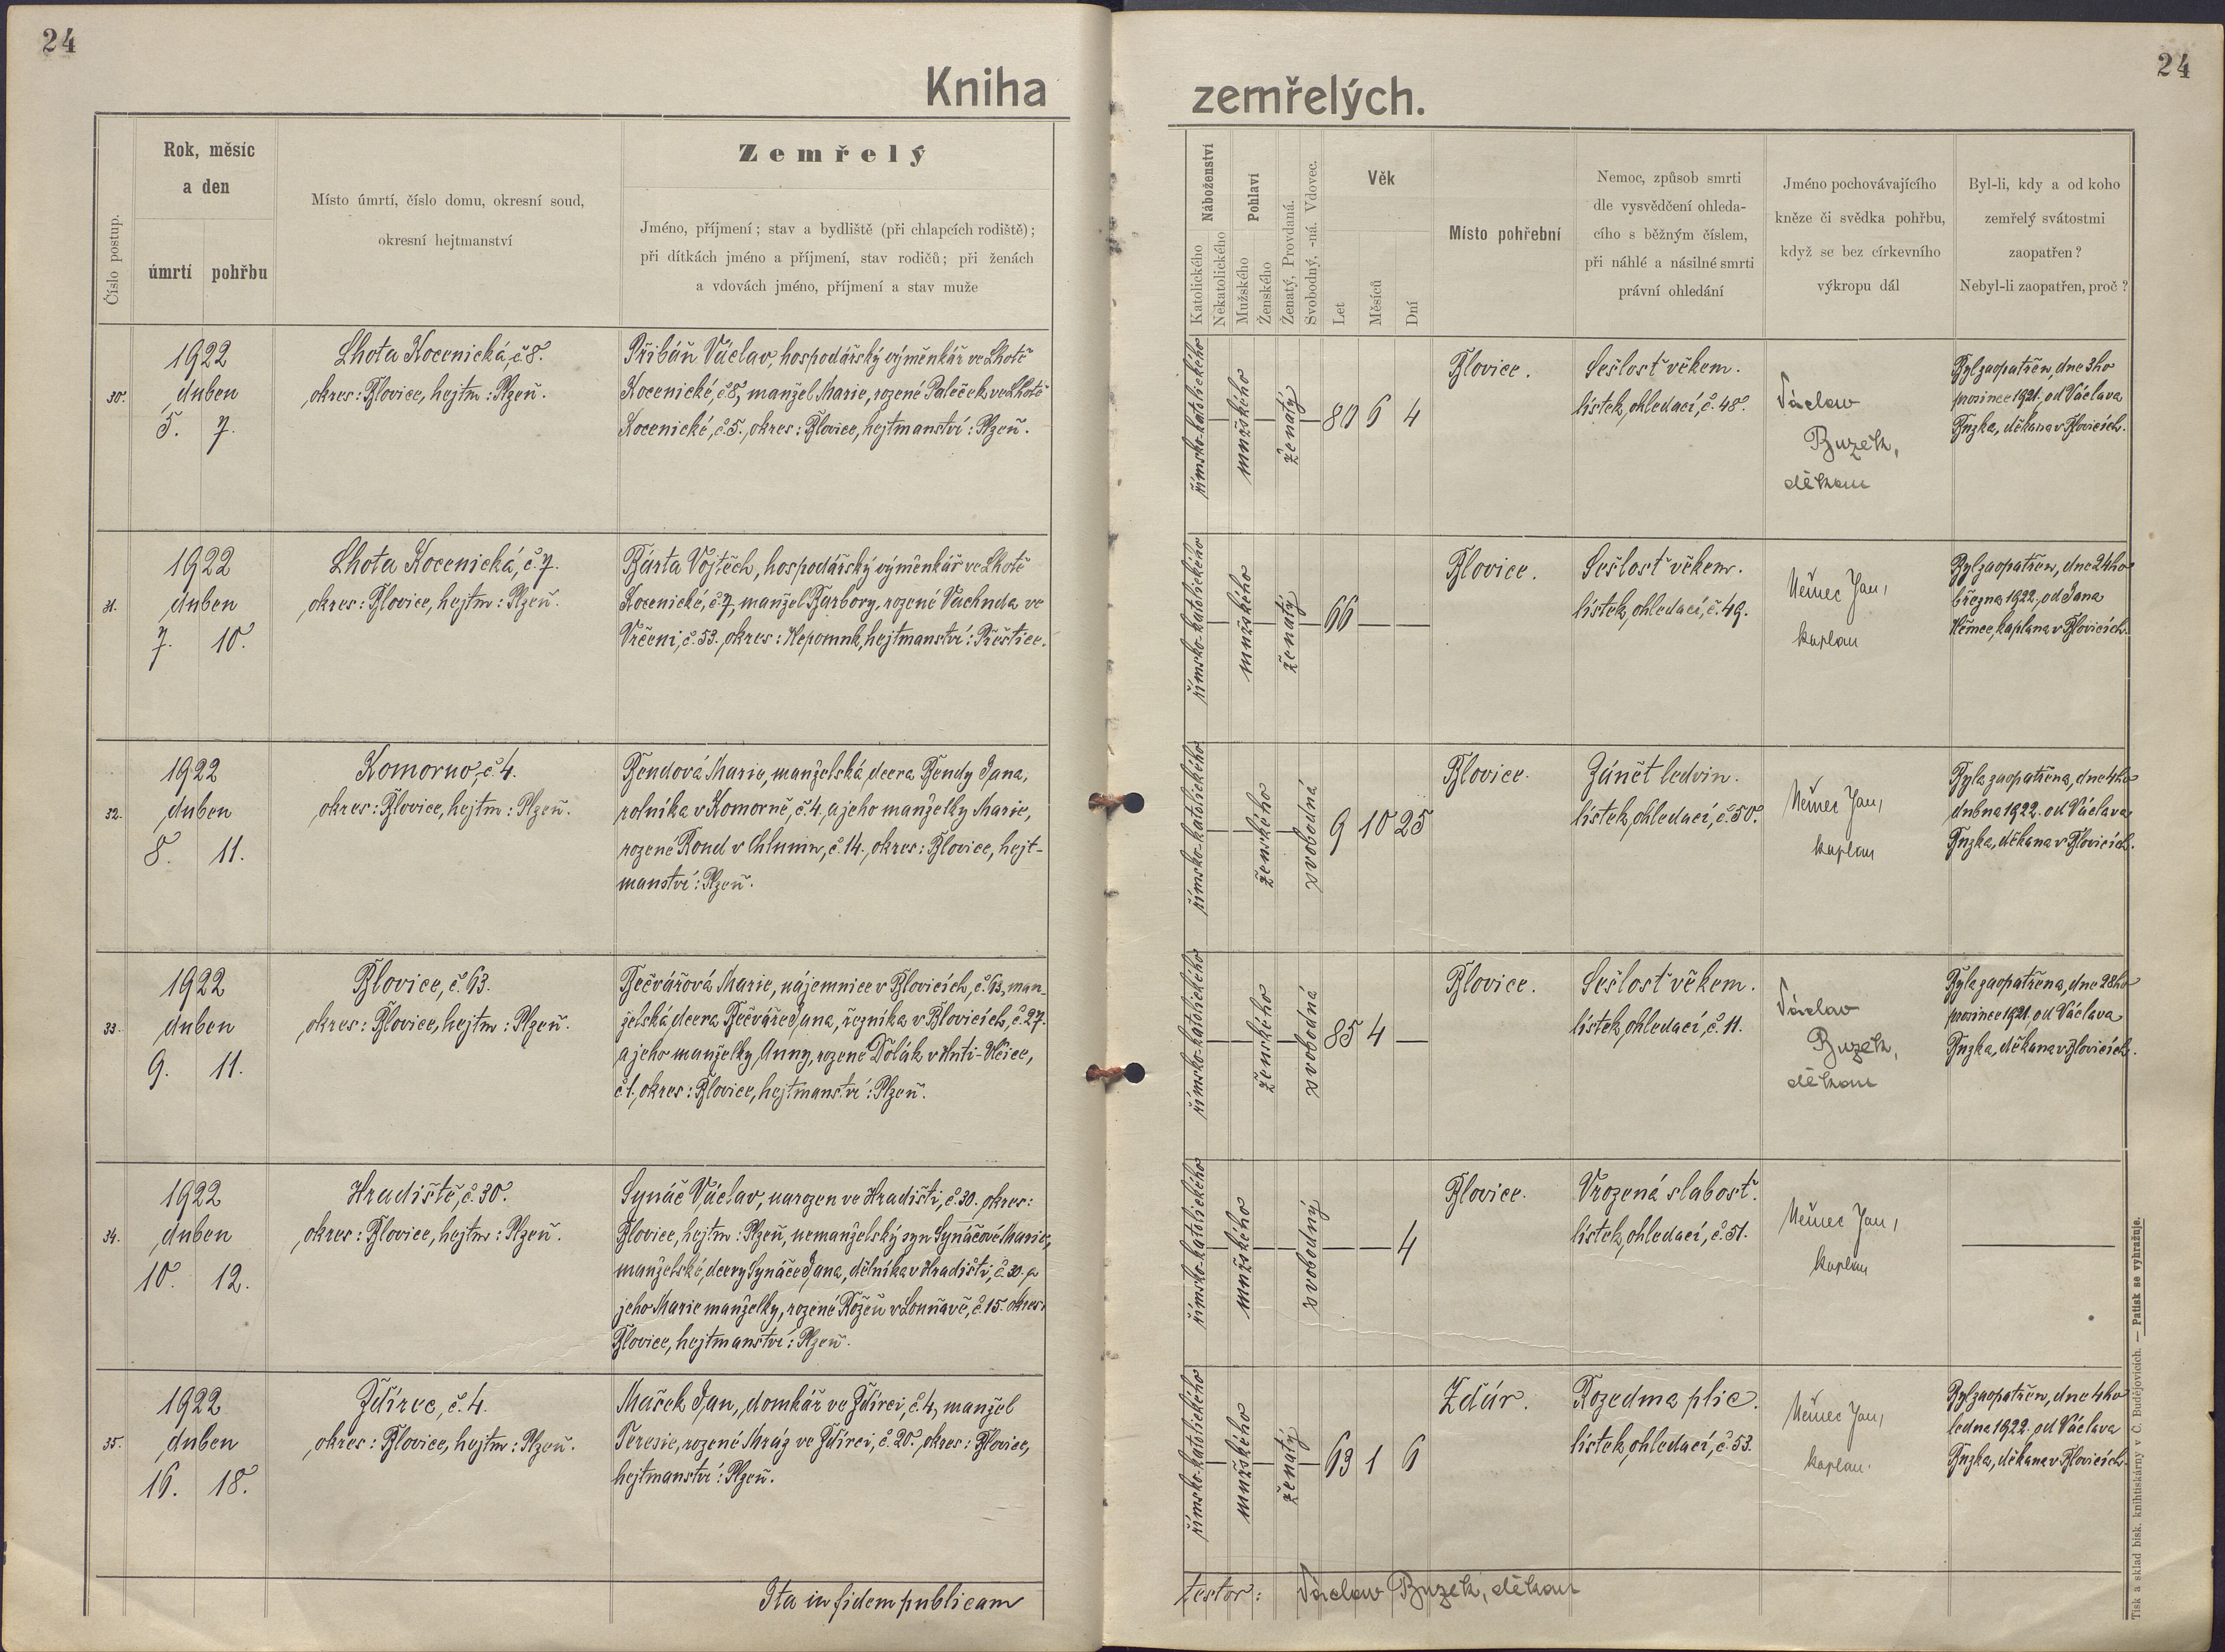 24
24
Kniha zemřelých.
Číslo postup.
Rok, měsíc
a den
úmrtí
pohřbu
Místo úmrtí, číslo domu, okresní soud,
okresní hejtmanství
Zemřelý
Jméno, příjmení; stav a bydliště (při chlapcích rodiště);
při dítkách jméno a příjmení, stav rodičů; při ženách
a vdovách jméno, příjmení a stav muže
Náboženství
Katolického
Nekatolického
Pohlaví
Mužského
Ženského
Ženatý, Provdaná.
Svobodný, -ná. Vdovec.
Věk
Let
Měsíců
Dní
Místo pohřební
Nemoc, způsob smrti
dle vysvědčení ohleda-
cího s běžným číslem,
při náhlé a násilné smrti
právní ohledání
Jméno pochovávajícího
kněze či svědka pohřbu,
když se bez církevního
výkropu dál
Byl-li, kdy a od koho
zemřelý svátostmi
zaopatřen?
Nebyl-li zaopatřen, proč?
30.
1922
duben
5. 7.
Lhota Kocenická, č. 8.
okres: Blovice, hejtm: Plzeň.
Přibáň Václav, hospodářský výměnkář ve Lhotě
Kocenické, č. 8, manžel Marie, rozené Paleček ve Lhotě
Kocenické, č. 5., okres: Blovice, hejtmanství: Plzeň.
římsko-katolického
mužského
ženatý
80 6 4
Blovice.
Sešlosť věkem.
lístek ohledací, č. 48.
Václav
Buzek,
děkan
Byl zaopatřen, dne 3ho
prosince 1921, od Václava
Buzka, děkana v Blovicích.
31.
1922
duben
7. 10.
Lhota Kocenická, č. 7.
okres: Blovice, hejtm: Plzeň.
Bárta Vojtěch, hospodářský výměnkář ve Lhotě
Kocenické, č. 7, manžel Barbory, rozené Vachuda ve
Vrčeni, č. 53., okres: Nepomuk, hejtmanství: Přeštice.
římsko-katolického
mužského
ženatý
66 — —
Blovice.
Sešlosť věkem.
lístek ohledací, č. 49.
Němec Jan,
kaplan
Byl zaopatřen, dne 24ho
března 1922, od Jana
Němce, kaplana v Blovicích.
32.
1922
duben
8. 11.
Komorno, č. 4.
okres: Blovice, hejtm: Plzeň.
Bendová Marie, manželská dcera Bendy Jana,
rolníka v Komorně, č. 4., a jeho manželky Marie,
rozené Koud v Chlumu, č. 14., okres: Blovice, hejt-
manství: Plzeň.
římsko-katolického
ženského
svobodná
9 10 25
Blovice.
Zánět ledvin.
lístek ohledací, č. 50.
Němec Jan,
kaplan
Byla zaopatřena, dne 4ho
dubna 1922. od Václava
Buzka, děkana v Blovicích.
33.
1922
duben
9. 11.
Blovice, č. 63.
okres: Blovice, hejtm: Plzeň.
Bečvářová Marie, nájemnice v Blovicích, č. 63, man-
želská dcera Bečváře Jana, řezníka v Blovicích, č. 27.
a jeho manželky Anny, rozené Dolák v Hutí-Vlčice,
č. 1., okres: Blovice, hejtmanství: Plzeň.
římsko-katolického
ženského
svobodná
85 4 —
Blovice.
Sešlosť věkem.
lístek ohledací, č. 11.
Václav
Buzek,
děkan
Byla zaopatřena, dne 28ho
prosince 1921, od Václava
Buzka, děkana v Blovicích.
34.
1922
duben
10. 12.
Hradiště, č. 30.
okres: Blovice, hejtm: Plzeň.
Synáč Václav, narozen ve Hradišti, č. 30. okres:
Blovice, hejtm: Plzeň, nemanželský syn Synáčové Marie,
manželské dcery Synáče Jana, dělníka v Hradišti, č. 30. a
jeho Marie manželky, rozené Rožeň v Louňavě, č. 15. okres:
Blovice, hejtmanství: Plzeň.
římsko-katolického
mužského
svobodný
— — 4
Blovice.
Vrozená slabosť.
lístek ohledací, č. 51.
Němec Jan,
kaplan
—
35.
1922
duben
16. 18.
Ždírec, č. 4.
okres: Blovice, hejtm: Plzeň.
Mašek Jan, domkář ve Ždírci, č. 4, manžel
Teresie, rozené Mráz ve Ždírci, č. 20., okres: Blovice,
hejtmanství: Plzeň.
římsko-katolického
mužského
ženatý
63 1 6
Zdár.
Rozedma plic.
lístek ohledací, č. 53.
Němec Jan,
kaplan.
Byl zaopatřen, dne 4ho
ledna 1922. od Václava
Buzka, děkana v Blovicích.
Ita in fidem publicam
testor: Václav Buzek, děkan
Tisk a sklad bisk. knihtiskárny v Č. Budějovicích. — Patisk se vyhražuje.